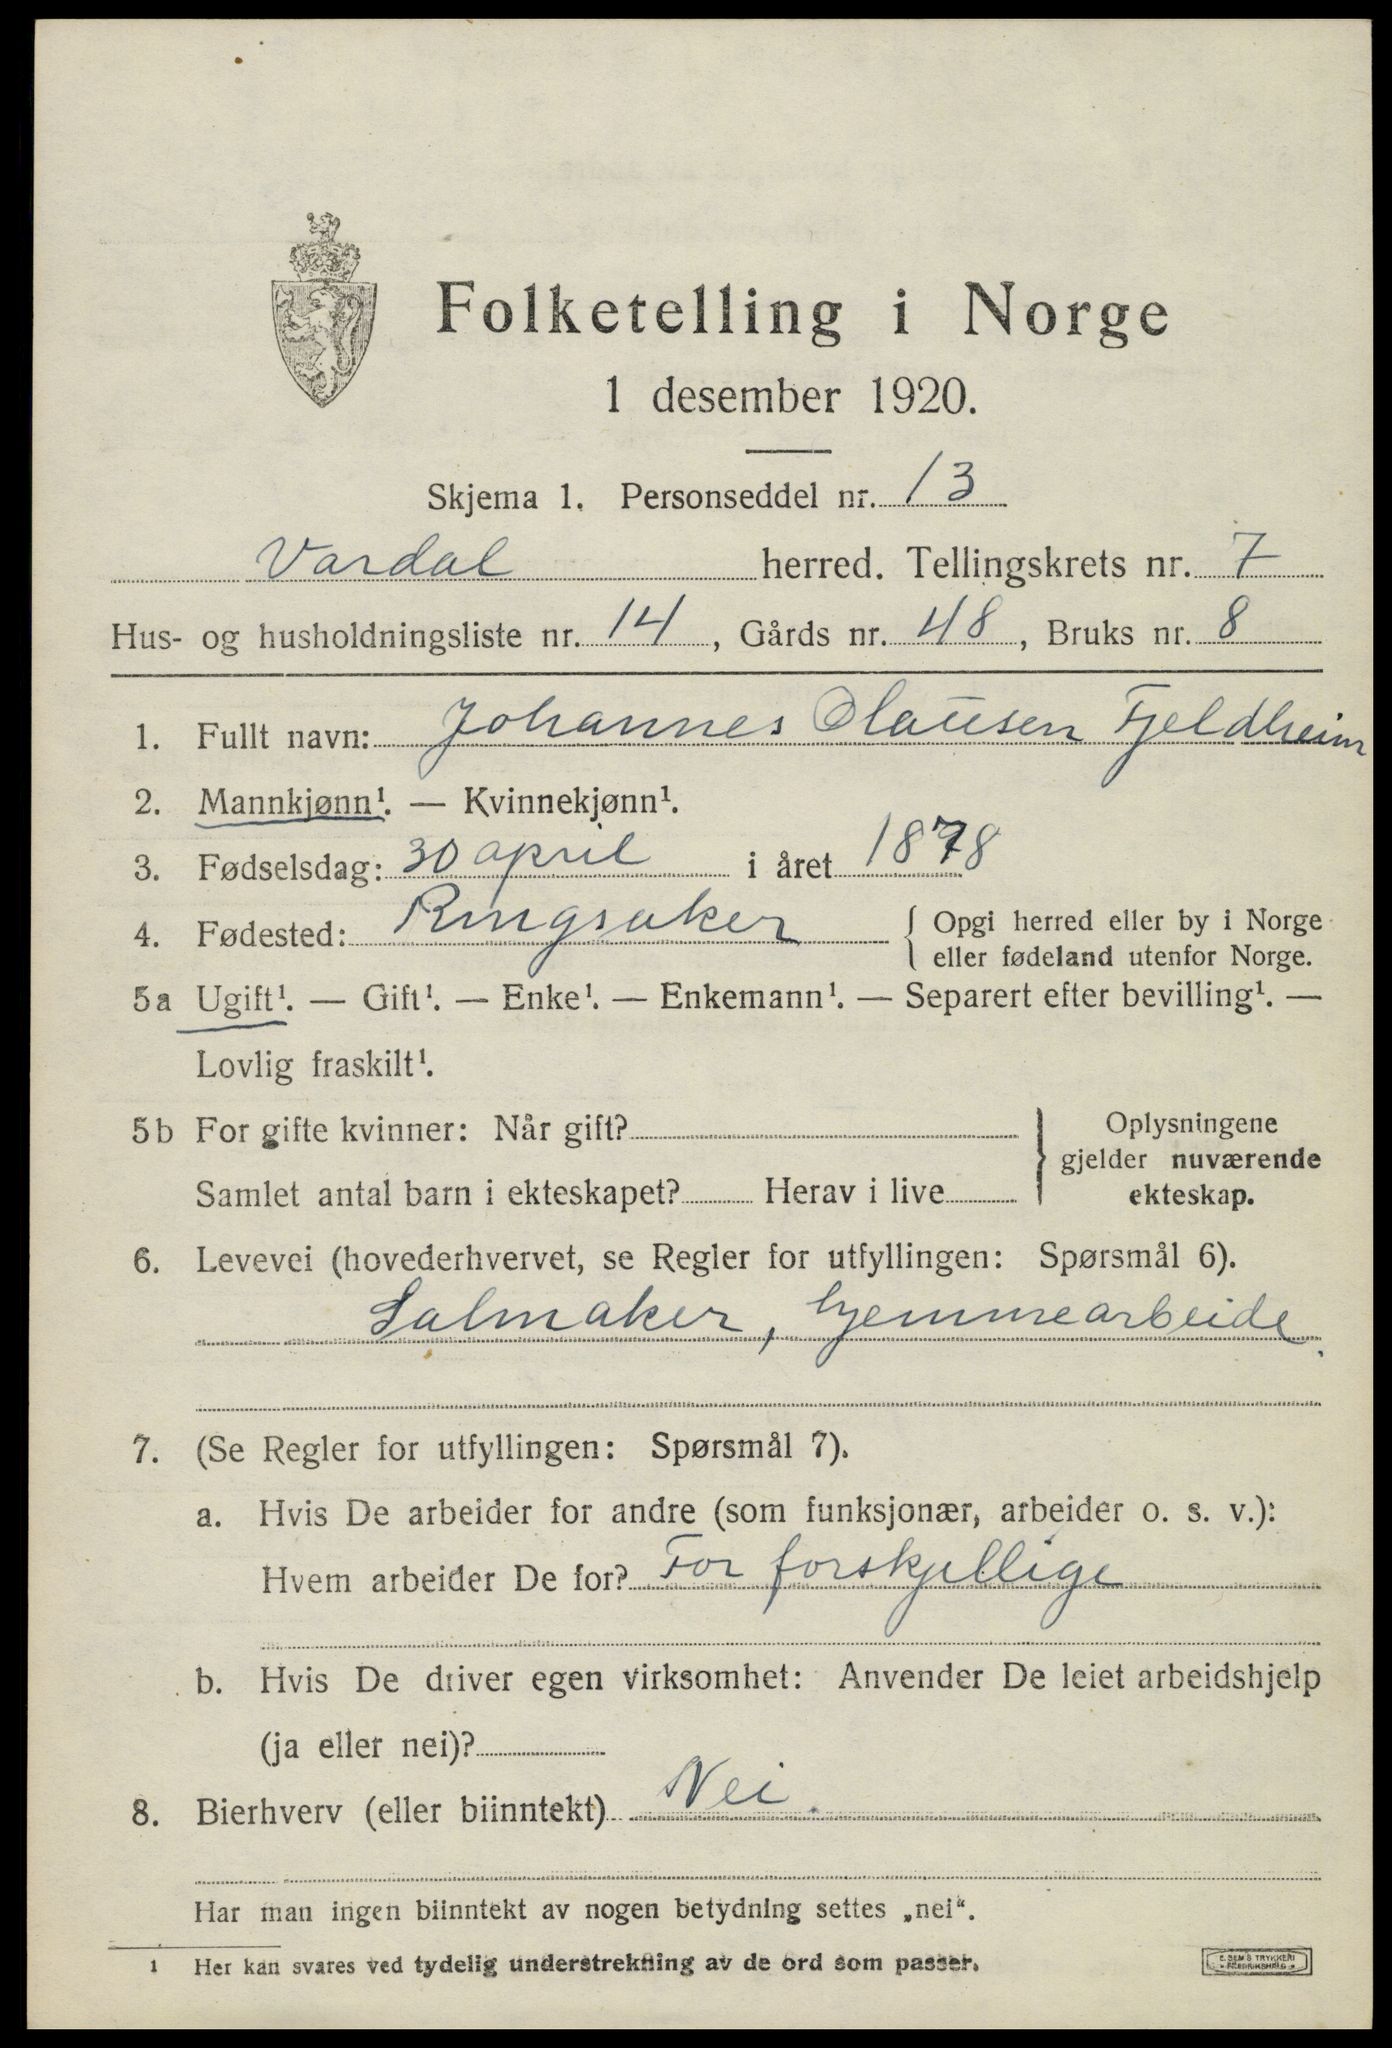 Folketelling i Norge
1 desember 1920.
Skjema 1. Personseddel nr. 13
Vardal herred. Tellingskrets nr. 7
Hus- og husholdningsliste nr. 14, Gårds nr. 48, Bruks nr. 8
1. Fullt navn: Johannes Olausen Fjeldheim
2. Mannkjønn¹. — Kvinnekjønn¹.
3. Fødselsdag: 30 april i året 1878
4. Fødested: Ringsaker { Opgi herred eller by i Norge
eller fødeland utenfor Norge.
5a Ugift¹. — Gift¹. — Enke¹. — Enkemann¹. — Separert efter bevilling¹. —
Lovlig fraskilt¹.
5b For gifte kvinner: Når gift? } Oplysningene
gjelder nuværende
Samlet antal barn i ekteskapet? Herav i live ekteskap.
6. Levevei (hovederhvervet, se Regler for utfyllingen: Spørsmål 6).
Salmaker, hjemmearbeide.
7. (Se Regler for utfyllingen: Spørsmål 7).
a. Hvis De arbeider for andre (som funksjonær, arbeider o. s. v.):
Hvem arbeider De for? For forskjellige
b. Hvis De driver egen virksomhet: Anvender De leiet arbeidshjelp
(ja eller nei)?
8. Bierhverv (eller biinntekt) Nei.
Har man ingen biinntekt av nogen betydning settes „nei“.
¹ Her kan svares ved tydelig understrekning av de ord som passer.
E. SEM'S TRYKKERI
FREDRIKSHALD